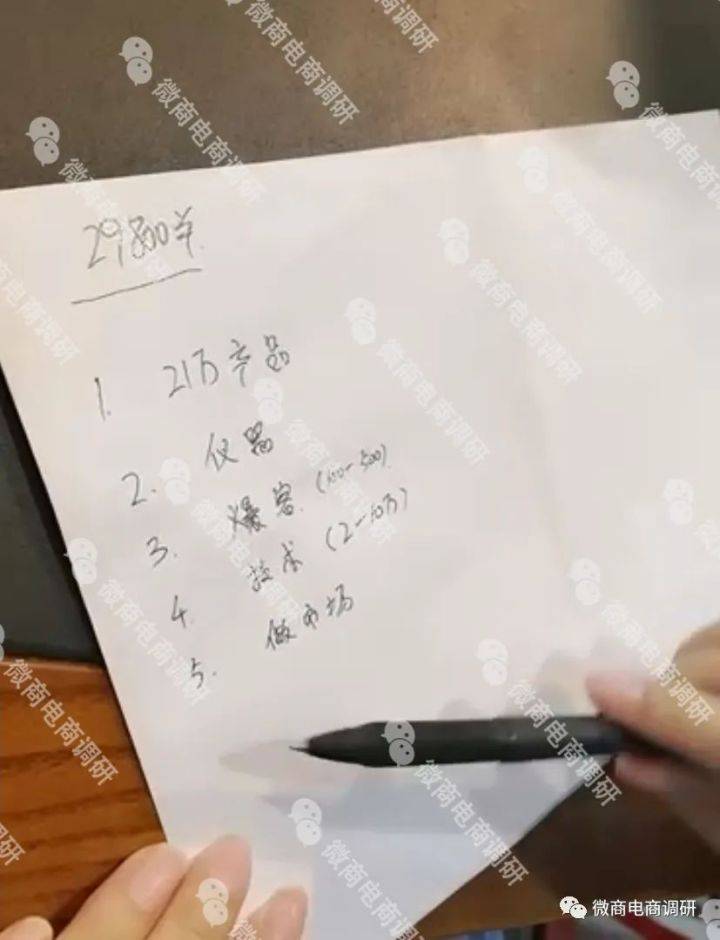 29800单
1. 21万产品
2. 仪器
3. 爆客 (100-500)
4. 技术 (2-10万)
5. 做市场
微商电商调研